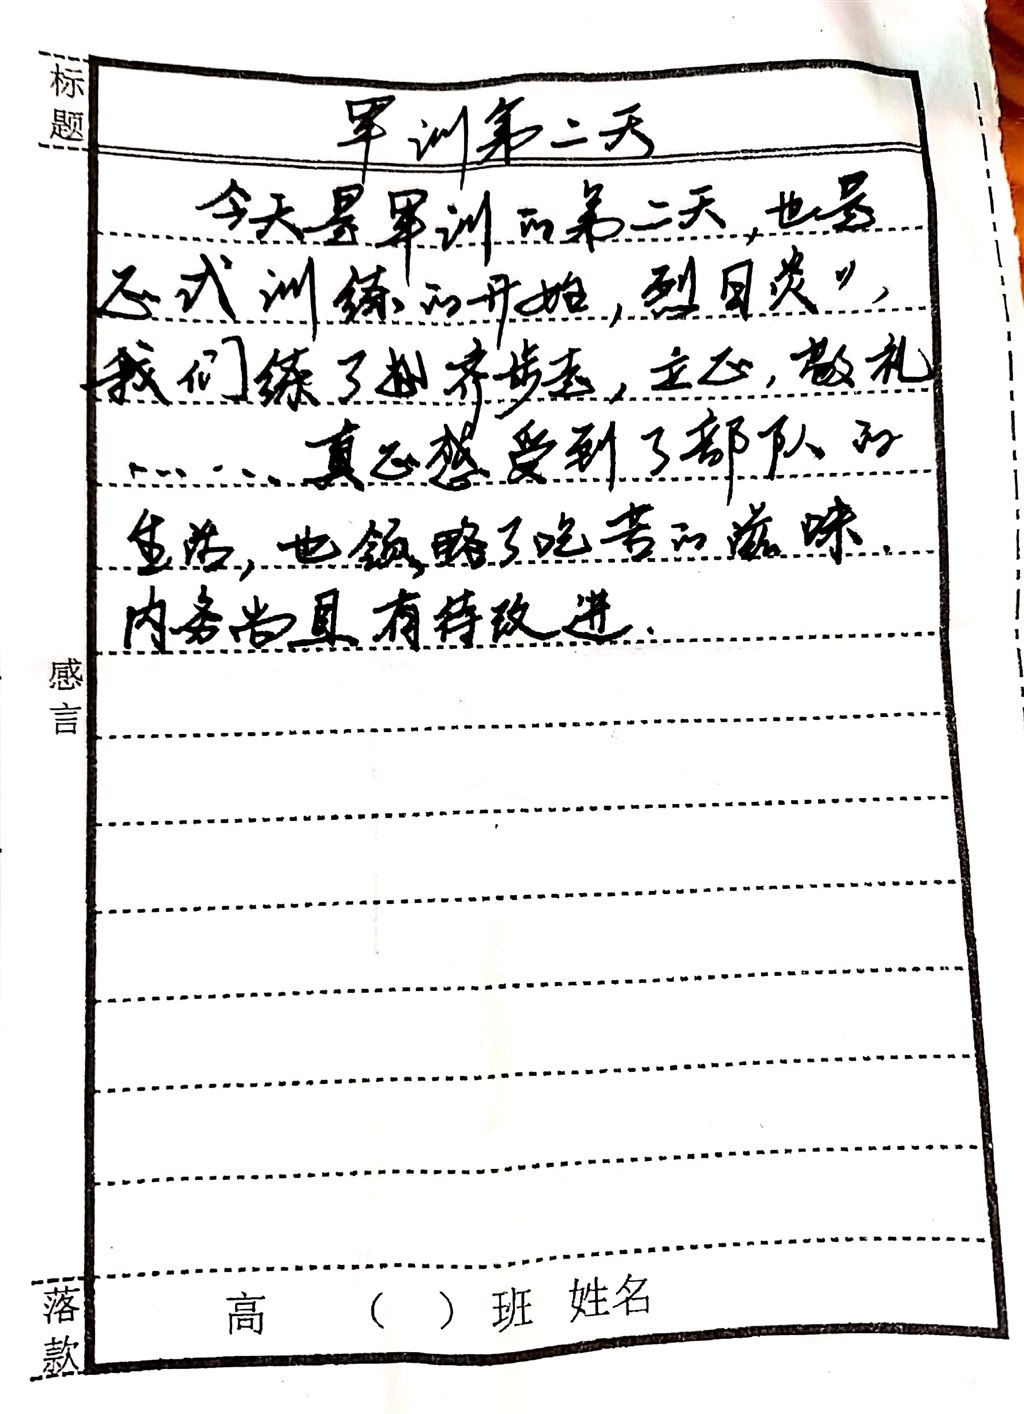 标题
军训第二天
今天是军训的第二天,也是
正式训练的开始,烈日炎〃,
我们练了齐步走,立正,敬礼
……真正感受到了部队的
生活,也领略了吃苦的滋味.
内务尚且有待改进.
感言
落款
高 ( ) 班 姓名